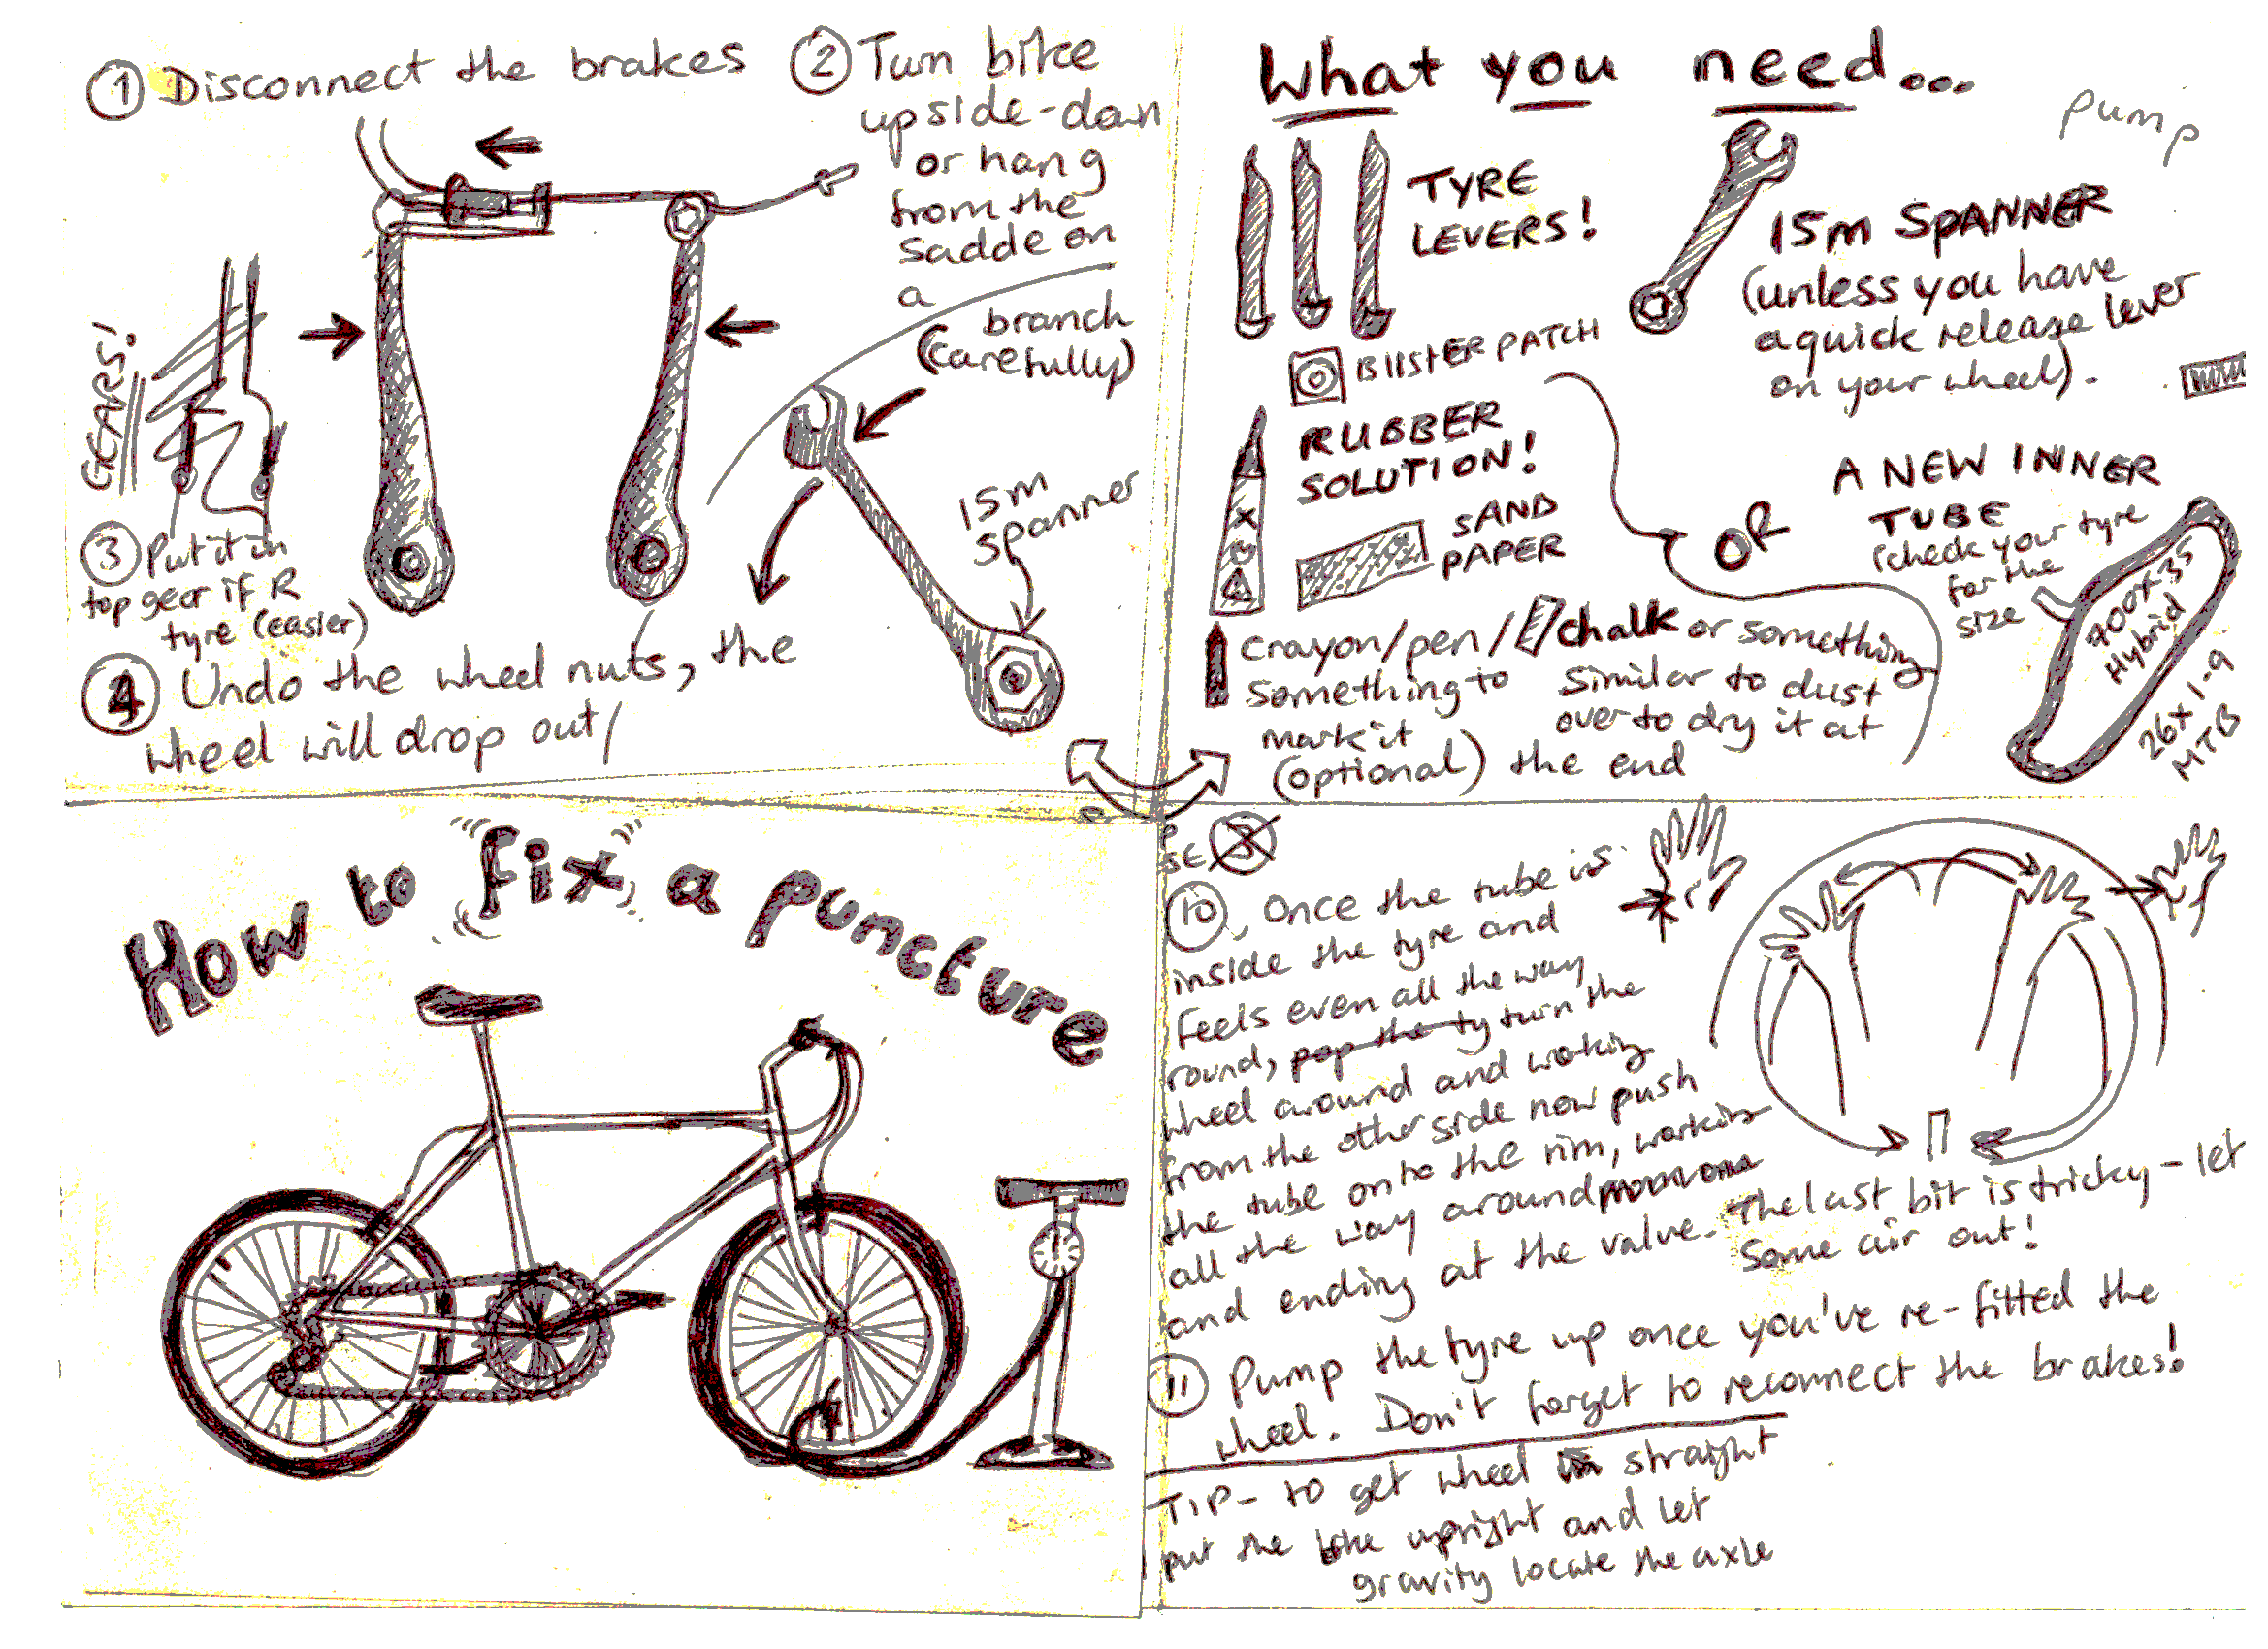 ① Disconnect the brakes
② Turn bike
upside-down
or hang
from the
sadde on
a
branch
(carefully)
GEARS!
③ Put it in
top gear if R
tyre (easier)
15m
spanner
④ Undo the wheel nuts, the
wheel will drop out
What you need...
pump
TYRE
LEVERS!
15m SPANNER
(unless you have
a quick release lever
on your wheel).
BlistER PATCH
RUBBER
SOLUTION!
SAND
PAPER
OR
A NEW INNER
TUBE
(check your tyre
for the
size
700+35
Hybrid
26+1.9
MTB
crayon/pen/
something to
mark it
(optional)
chalk or something
similar to dust
over to dry it at
the end
How to fix a puncture
⑩, Once the tube is
inside the tyre and
feels even all the way
round, pop the ty turn the
wheel around and working
from the other side now push
the tube onto the rim, working
all the way around
and ending at the valve. The last bit is tricky - let
some air out!
⑪ Pump the tyre up once you've re-fitted the
wheel. Don't forget to reconnect the brakes!
TIP - to get wheel straight
put the bike upright and let
gravity locate the axle